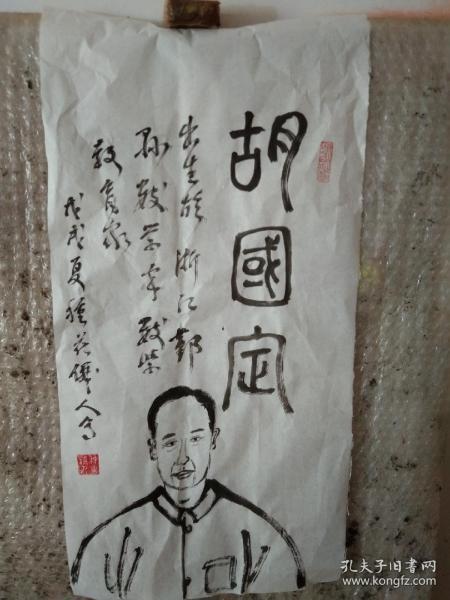 胡國定
出生於浙江鄞
縣數学家教
教育家
戊戌夏種芸儂人写
孔夫子旧书网
www.kongfz.com